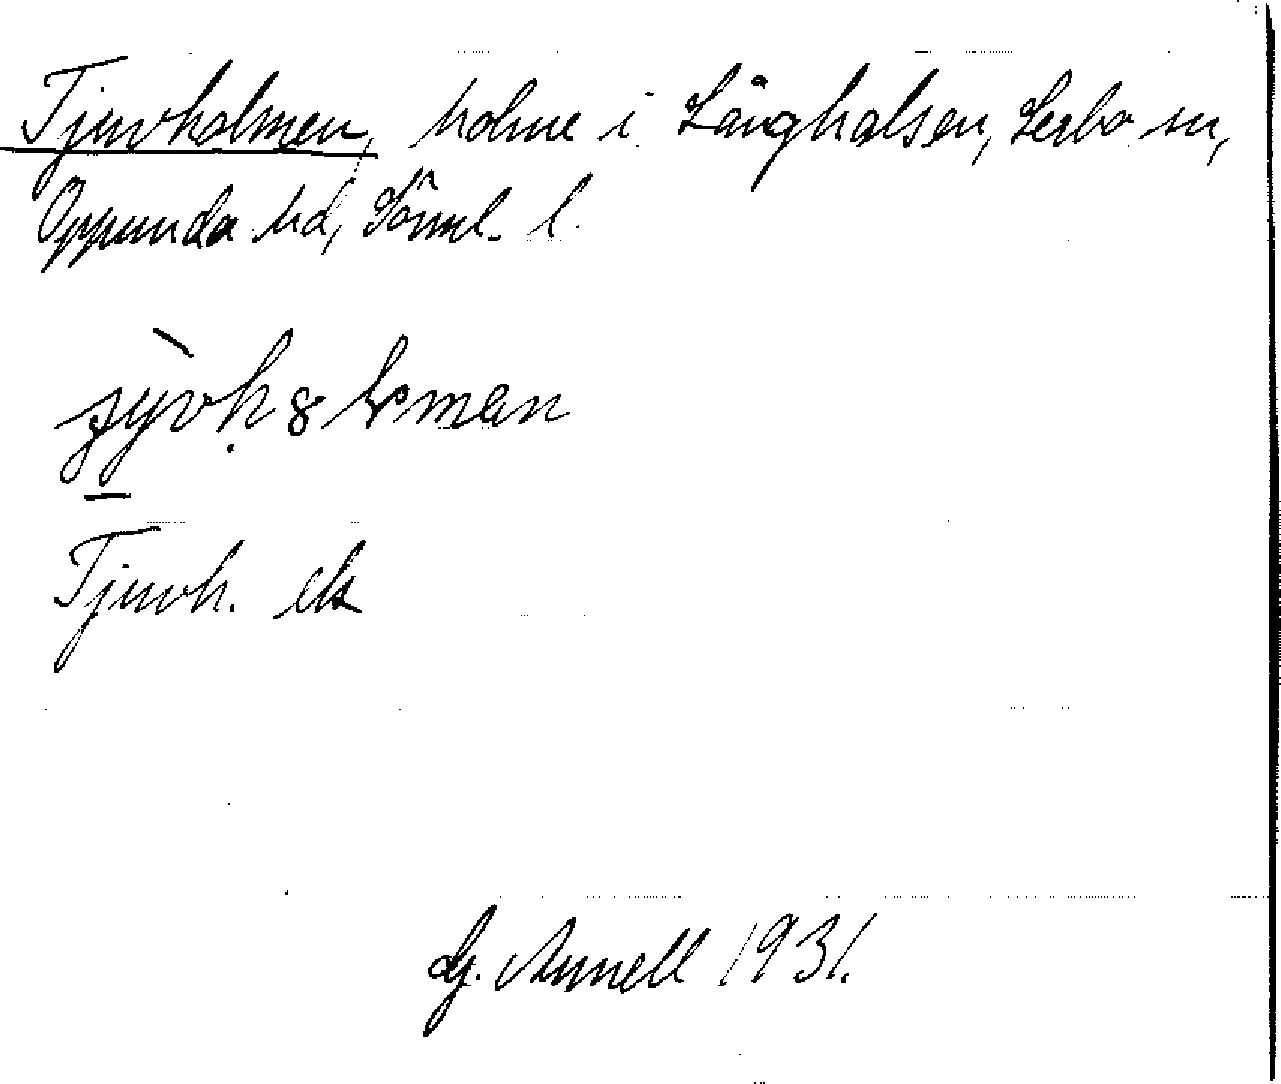 Tjuvholmen, holme i Långhalsen, Lerbo sn,
Oppunda hd, Sörml. l.
Tjuvh. ek
G. Annell 1931.